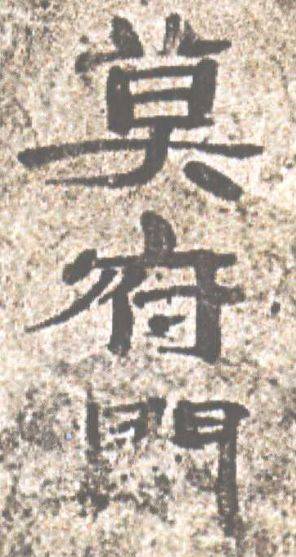 莫府門